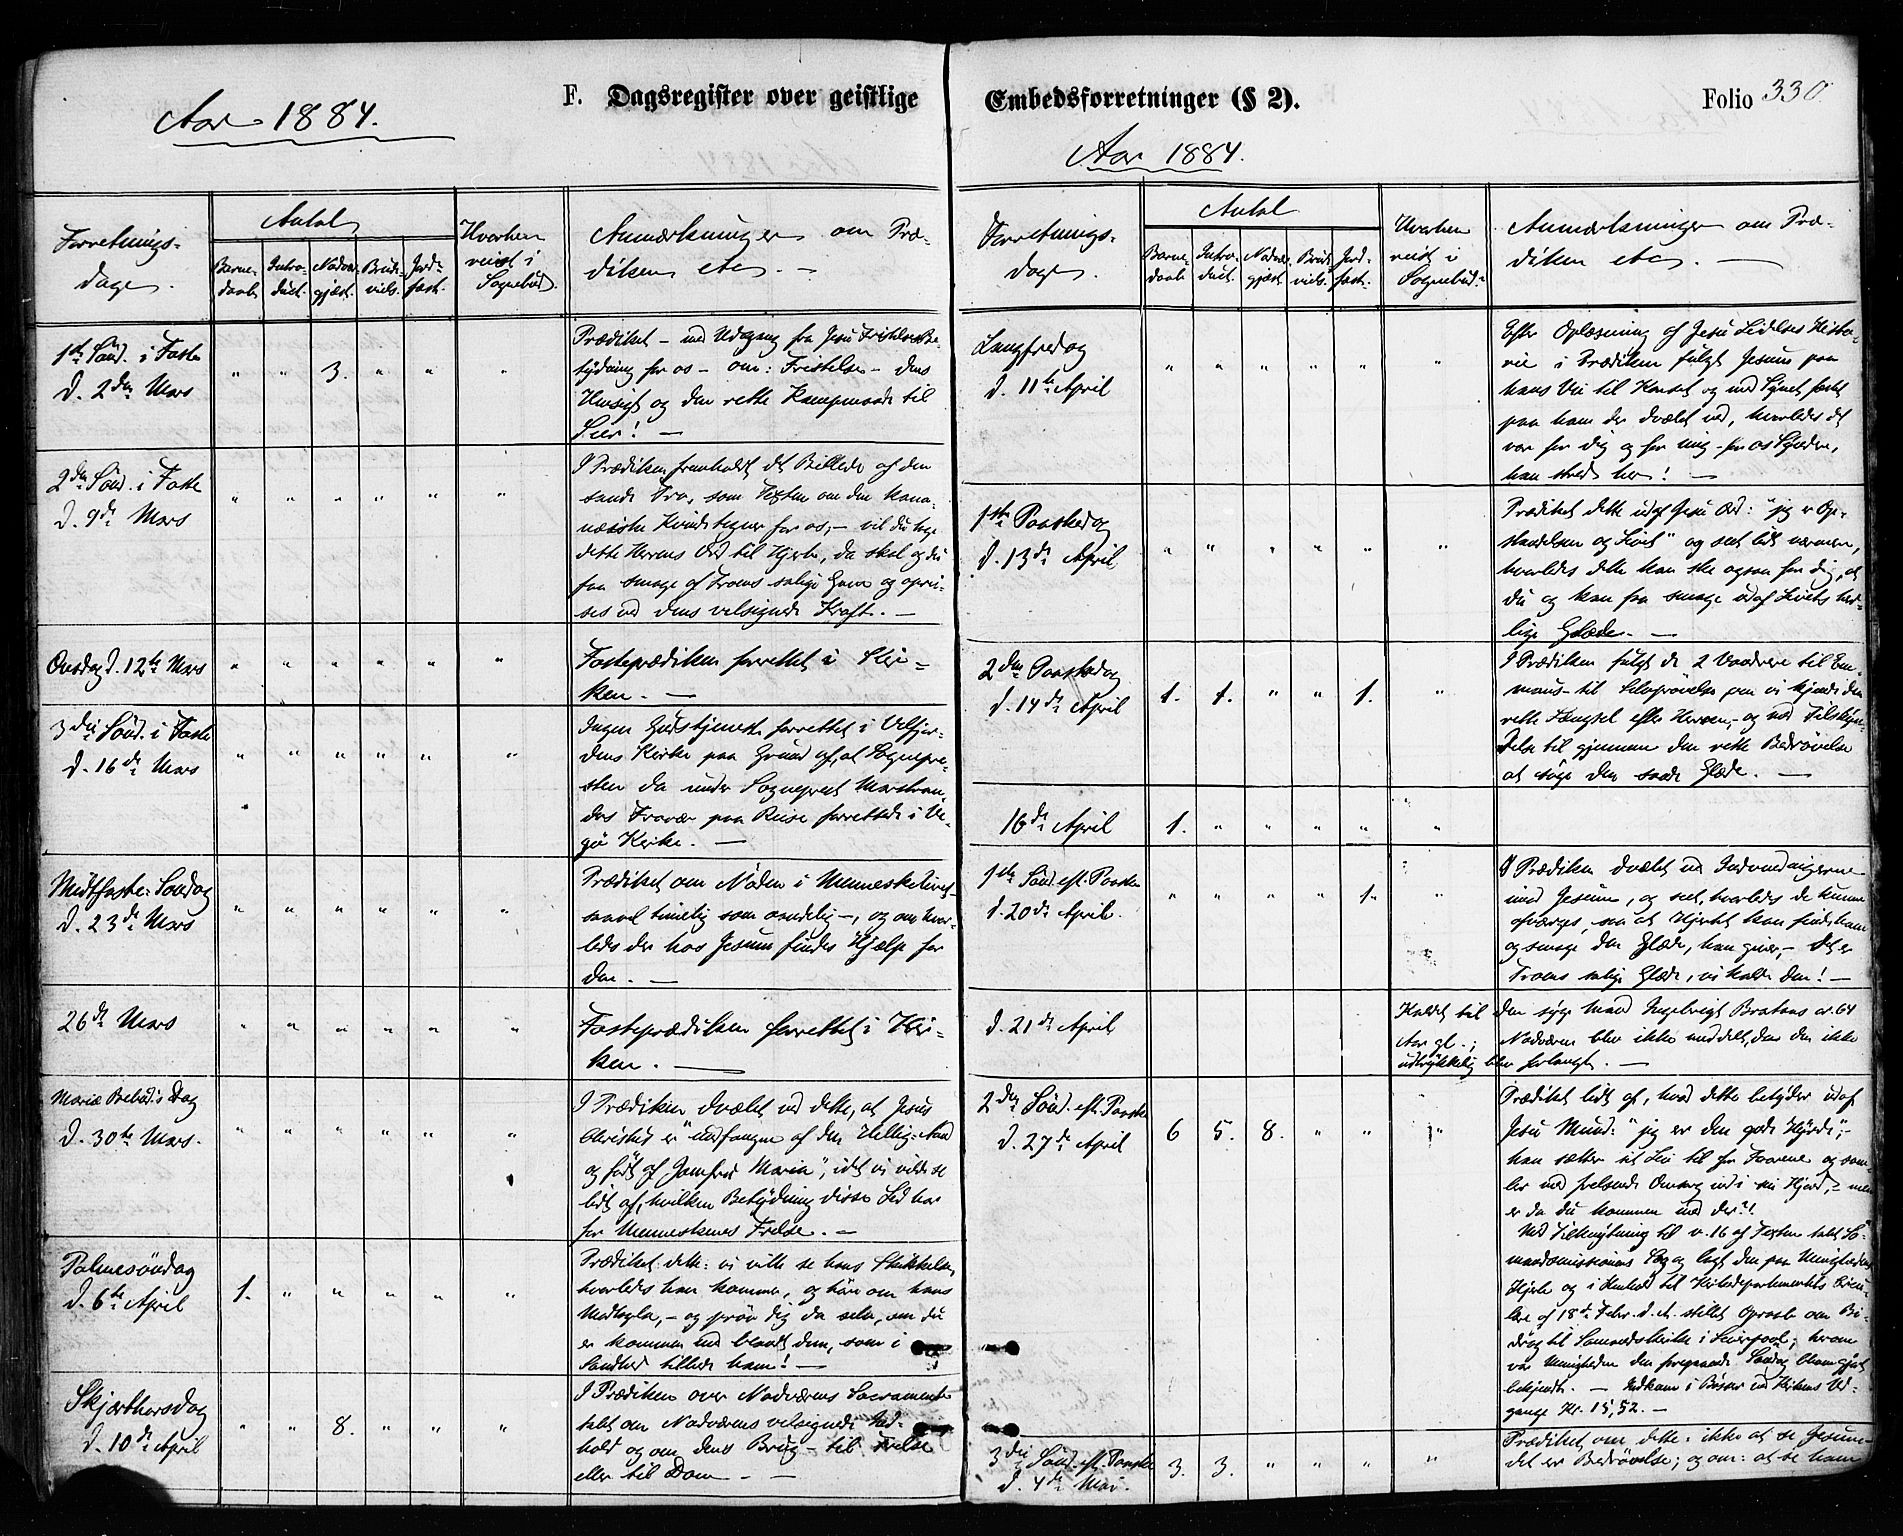 F. Dagsregister over geistlige
Aar 1884.
Forretnings-
dage.
Antal
Barne-
daab.
Intro-
duct.
Nadver-
gjæst.
Brude-
viels.
Jord-
fæst.
Hvorhen
reist i
Sognebud.
Anmærkninger om Præ-
diken etc. —
1ste Sönd. i Faste
d. 2den Mars
" " 3. " " "
Prædiket — med Udgang fra Jesu Fristelses Be-
tydning for os — om: Fristelse — dens
Hensigt og den rette Kampmaade til
Seier! —
2den Sönd. i Faste
d. 9de Mars
" " " " " "
I Prædiken fremholdt det Billede af den
sande Tro, som Texten om den kana-
næiske Kvinde tegner for os, — vil du tage
dette Herrens Ord til Hjerte, da skal og du
faa smage af Troens salige Gave og oprei-
ses ved dens velsignede Kraft. —
Onsdag d. 12te Mars
" " " " " "
Fasteprædiken forrettet i Kir-
ken. —
3die Sönd. i Faste
d. 16de Mars
" " " " " "
Ingen Gudstjeneste forrettet i Velfjor-
dens Kirke paa Grund af, at Sognepre-
sten da under Sogneprest Marstran-
das Fravær paa Reise forrettede i Ve-
gö Kirke. —
Midtfaste-Sondag
d. 23de Mars
" " " " " "
Prædiket om Nöden i Menneskelivet —
saavel timelig som aandelig —, og om hvor-
ledes der hos Jesum findes Hjælp for
den. —
26de Mars
" " " " " "
Fasteprædiken forrettet i Kir-
ken. —
Mariæ Bebud.s Dag
d. 30te Mars.
" " " " " "
I Prædiken dvælet ved dette, at Jesus
Christus er "undfangen af den Hellig-Aand
og födt af Jomfru Maria", idet vi vilde se
lidt af, hvilken Betydning disse Led har
for Menneskenes Frelse. —
Palmesöndag
d. 6te April
1. " " " " "
Prædiket dette: vi ville se hans Skikkelse,
hvorledes han komme, og höre om hans
Modtagelse, — og pröv dig da selv, om du
er kommen ind blandt dem, som i
Sandhed tillede ham! —
Skjærthorsdag
d. 10de April
" " 8. " " "
I Prædiken over Nadverens Sacramente
talt om Nadverens velsignede Ind-
hold og om dens Brug — til Frelse
eller til Dom. —
Embedsforretninger (§ 2).
Folio 330.
Aar 1884.
Forretnings-
dage.
Antal
Barne-
daab.
Intro-
duct.
Nadver-
gjæst.
Brud-
viels.
Jord-
fæst.
Hvorhen
reist i
Sognebud.
Anmærkninger om Præ-
diken etc. —
Langfredag
d. 11te April
" " " " " "
Efter Oplæsning af Jesu Lidelses Histo-
rie i Prædiken fulgt Jesum paa
hans Vei til Korset og med Synet fæstet
paa ham der dvælet ved, hvorledes det
var for dig og for mig — for os Syndere,
han stred her! —
1ste Paaskedag
d. 13de April
" " " " " "
Prædiket dette udaf Jesu Ord: "jeg er Op-
standelsen og Livet" og seet lidt nærmere,
hvorledes dette kan ske ogsaa for dig, at
du og kan faa smage udaf Livets her-
lige Glæde. —
2den Paaskedag
d. 14de April
1. 1. " " 1. "
I Prædiken fulgt de 2 Vandrere til Em-
maus — til Selvprövelse om vi kjende den
rette Længsel efter Herren, — og med Tilskyn-
delse til gjennem den rette Bedrövelse
at söge den sande Glæde. —
16de April
1. " " " " "
1ste Sönd. eft. Paaske
d. 20de April.
" " " " 1. "
I Prædiken dvælet ved Indvendingerne
imod Jesum, og seet, hvorledes de kunne
afværges, saa at Hjertet kan finde ham
og smage den Glæde, han giver, — Det er
Troens salige Glæde, vi kalde den! —
d. 21de April
Kaldet til den syge Mand Ingebrigt Brataas ca. 64
Aar gl.; Nadveren blev ikke meddelt, da den ikke
udtrykkelig blev forlangt. —
2den Sönd. eft. Paaske
d. 27de April
6 5. 8. " " "
Prædiket lidt af, hvad dette betyder udaf
Jesu Mund: "jeg er den gode Hyrde"; —
han sætter sit Liv til for Faarene og sam-
ler med frelsende Omsorg ind i sin Hjord, — men
er da du kommen ind der?!
Ved Tilknytning til v. 16 af Texten talt Sö-
mandsmissionens Sag og lagt den paa Menighedens
Hjerte og i Henhold til Kirkedepartementets Circu-
lære af 18de Febr. d. A. stillet Opraab om Bi-
drag til Sömandskirke i Liverpool; herom
var Menigheden den foregaaende Söndag bleven gjort
bekjendt. — Indkom i Bösser ved Kirkens Ud-
gange Kr. 15,52. —
3die Sönd. eft. Paaske
d. 4de Mai.
3. 3. " " " "
Prædiket om dette: ikke at se Jesum —
det er Bedrövelse; og om: at se ham